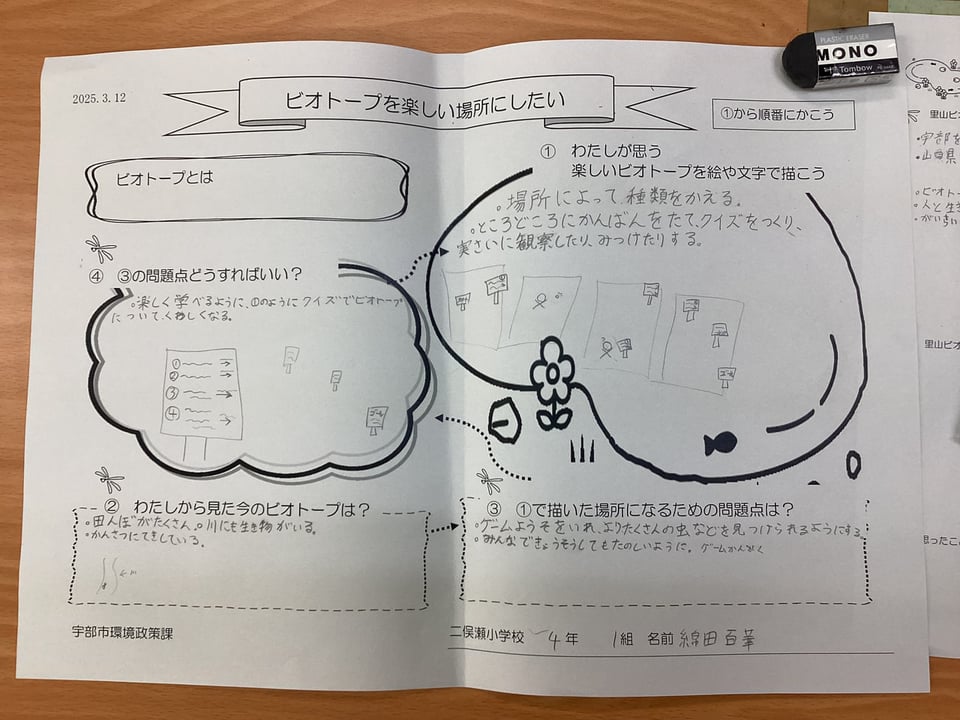 2025.3.12
ビオトープを楽しい場所にしたい
①から順番にかこう
ビオトープとは
① わたしが思う
楽しいビオトープを絵や文字で描こう
。場所によって種類をかえる。
。ところどころにかんばんをたて、クイズをつくり、
実さいに観察したり、みつけたりする。
④ ③の問題点どうすればいい？
。楽しく学べるように、①のようにクイズでビオトープ
について、くわしくなる。
①
②
③
④
ゴール
② わたしから見た今のビオトープは？
。田んぼがたくさん。。川にも生き物がいる。
。かんさつにてきしている。
③ ①で描いた場所になるための問題点は？
。ゲームようそをいれ、よりたくさんの虫などを見つけられるようにする。
。みんなできょうそうしてもたのしいように。ゲームかんかく
宇部市環境政策課
二俣瀬小学校 4年 1組 名前 綿田百華
PLASTIC ERASER
MONO
Tombow
里山ビオ
・宇部を
・山口県
。ビオト
。人と生
。がいちゅ
里山ビオ
思ったこ